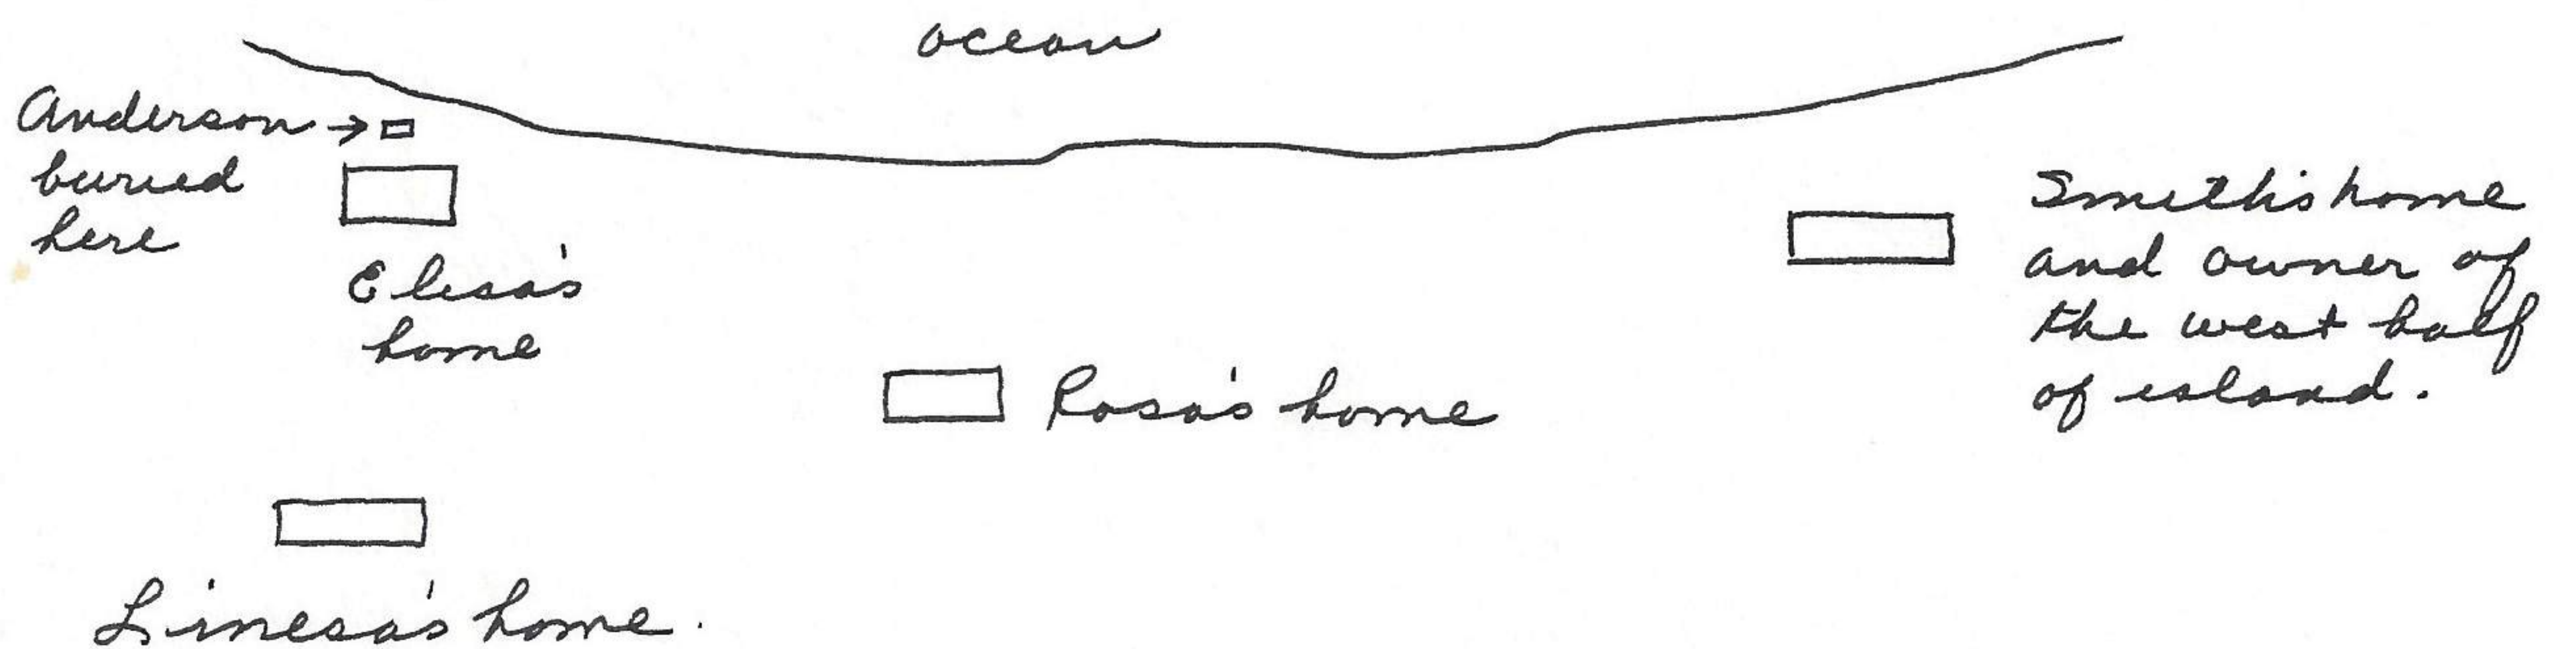 ocean
Anderson →
buried
here
Elisa's
home
Smith's home
and owner of
the west half
of island.
Rosa's home
Linesa's home.